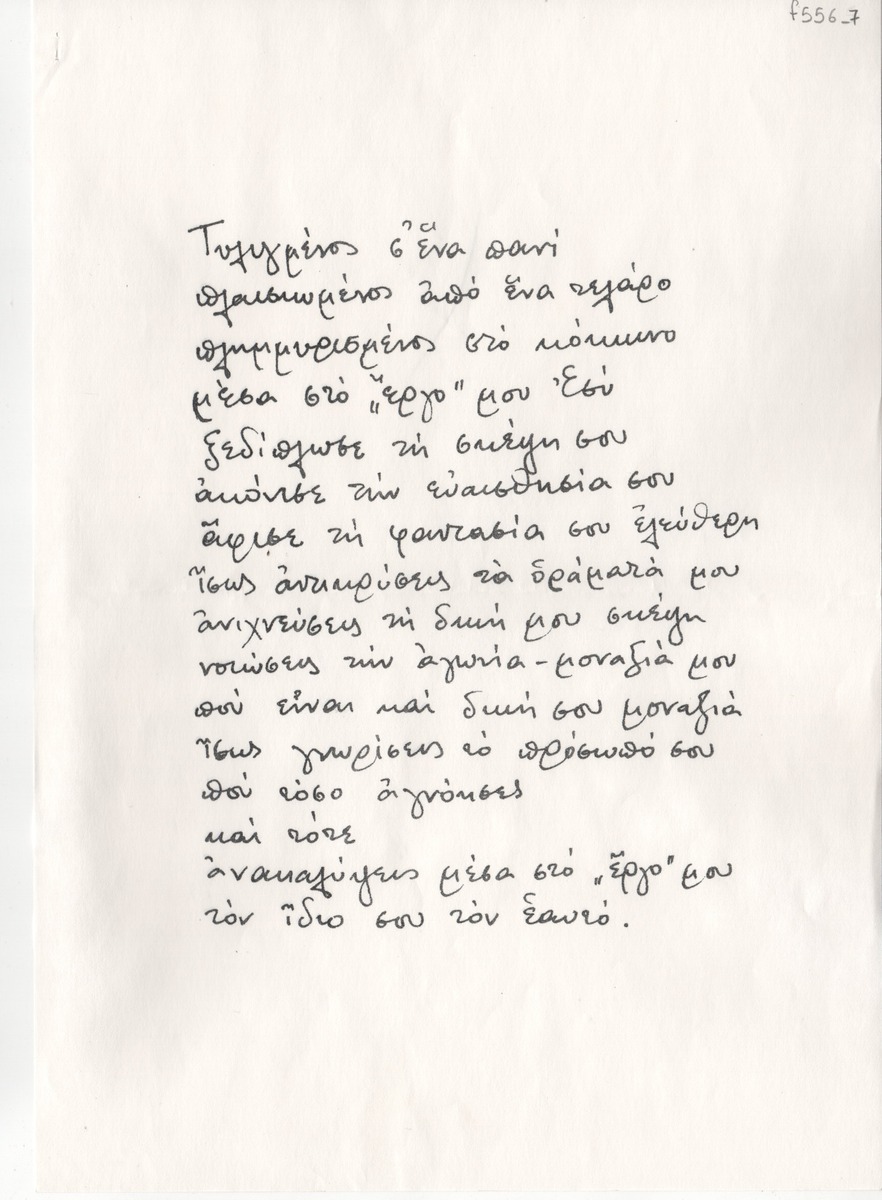 f556_7
Τυλιγμένος σ' ἕνα πανί
πλαισιωμένος ἀπό ἕνα τελάρο
πλημμυρισμένος στό κόκκινο
μέσα στό „ἔργο" μου Ἐσύ
ξεδίπλωσε τή σκέψη σου
ἀκόνισε τήν εὐαισθησία σου
ἄφισε τή φαντασία σου ἐλεύθερη
ἴσως ἀντικρύσεις τά ὁράματά μου
ἀνιχνεύσεις τή δική μου σκέψη
νοιώσεις τήν ἀγωνία - μοναξιά μου
πού εἶναι καί δική σου μοναξιά
ἴσως γνωρίσεις τό πρόσωπό σου
πού τόσο ἀγνόησες
καί τότε
ἀνακαλύψεις μέσα στό „ἔργο" μου
τόν ἴδιο σου τόν ἑαυτό.